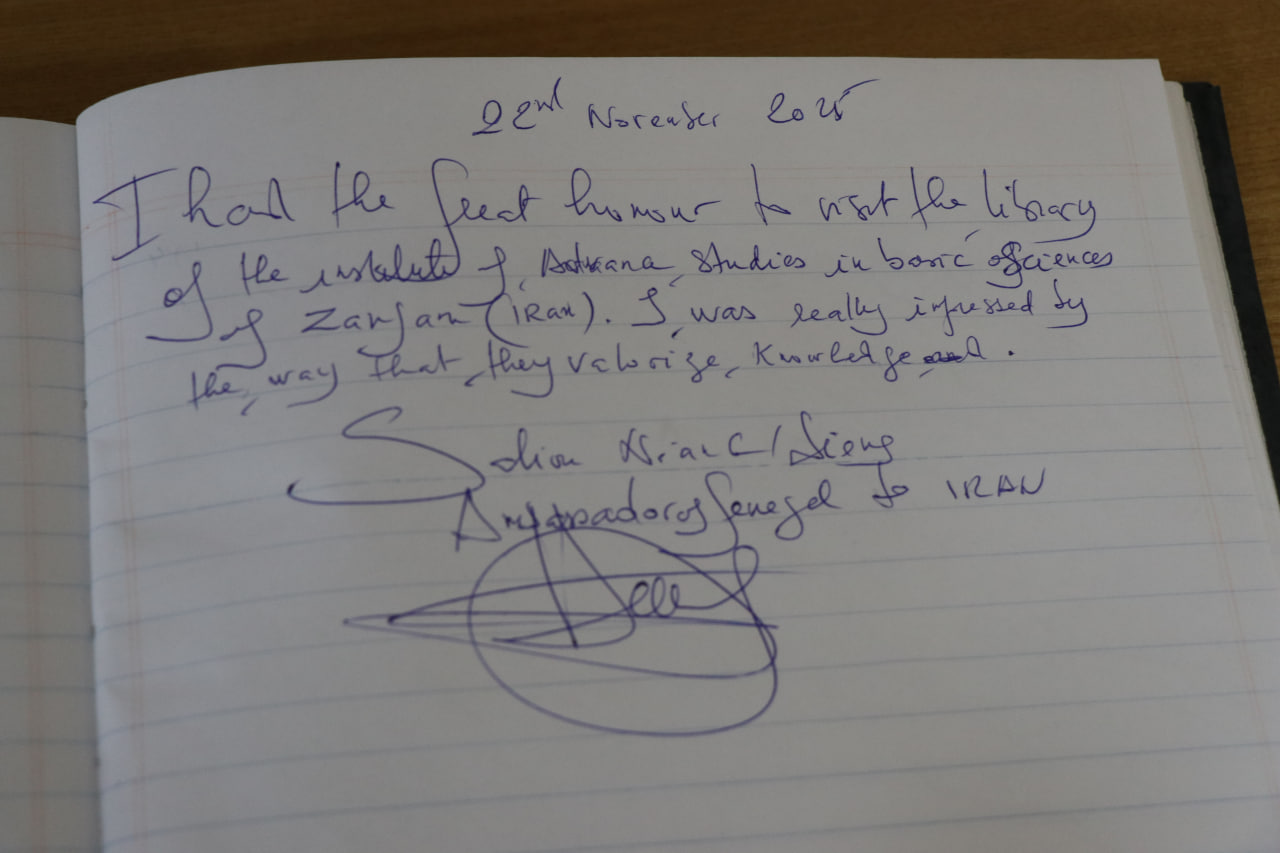 22nd November 2025
I had the great honour to visit the library
of the institute of studies in basic Sciences
of Zanjan (IRan). I was really impressed by
the way that they valorize knowledge.
Niang / Dieng
Ambassador of Senegal to IRAN